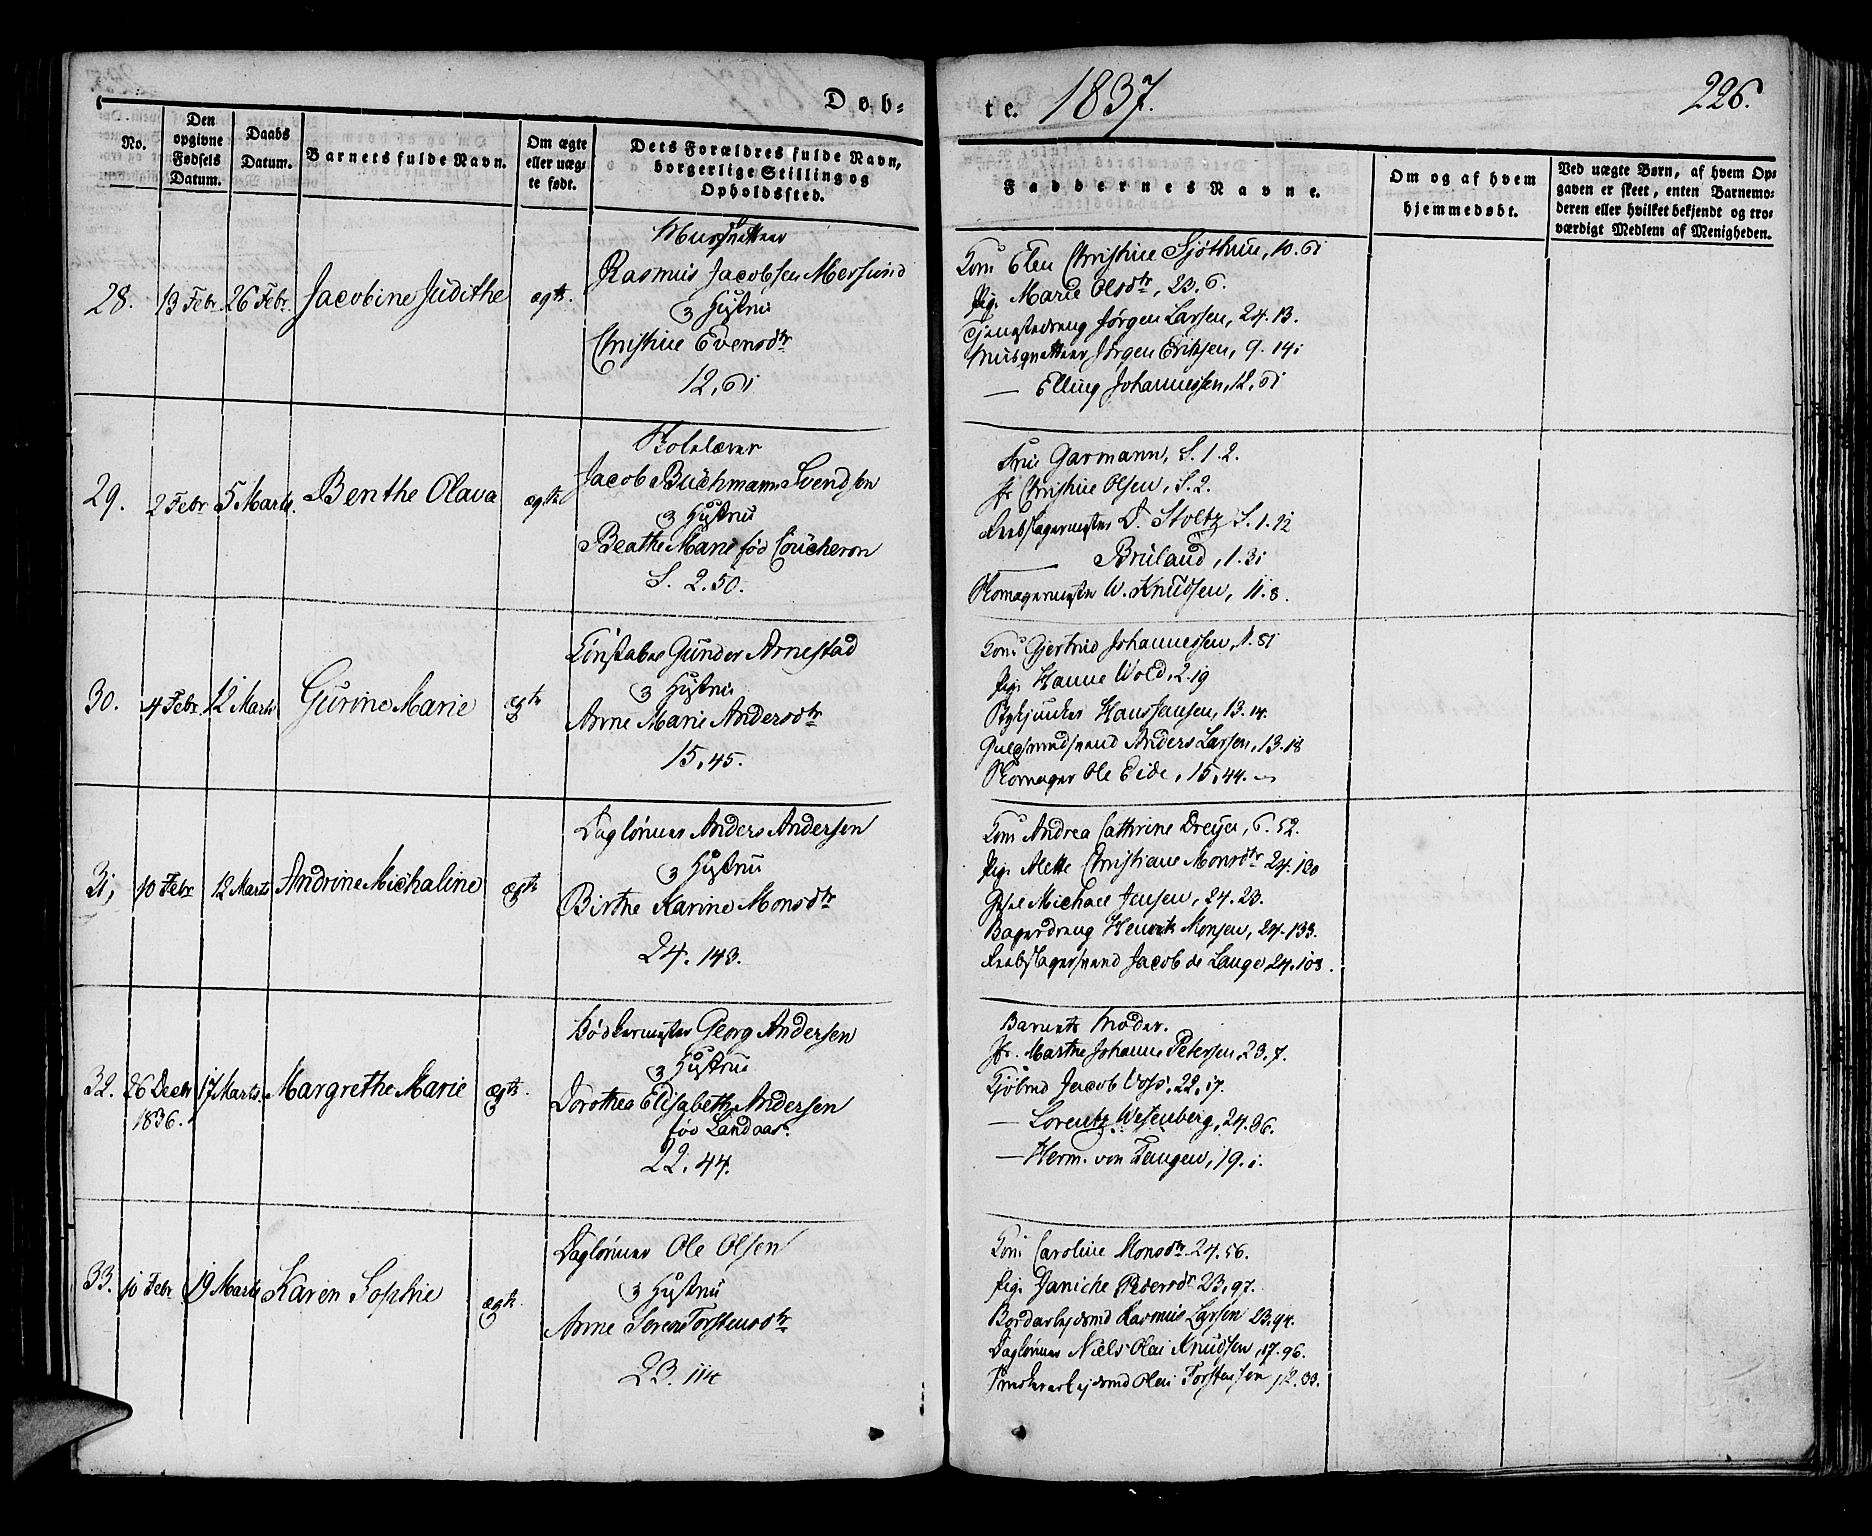 Døb-
te. 1837.
226.
No.
Den
opgivne
Fødsels
Datum.
Daabs
Datum.
Barnets fulde Navn.
Om ægte
eller uæg-
te født.
Dets Forældres fulde Navn,
borgerlige Stilling og
Opholdssted.
Faddernes Navne.
Om og af hvem
hjemmedøbt.
Ved uægte Børn, af hvem Op-
gaven er skeet, enten Barnemo-
deren eller hvilket bekjendt og tro-
værdigt Medlem af Menigheden.
28.
13 Febr
26 Febr.
Jacobine Judithe
ægte.
Musqvetteer
Rasmus Jacobsen Mersund
& Hustru
Christine Evensdtr
12,61
Kone Elen Christine Sjøthun, 10.61
Pige Marie Olsdtr, 23.6.
Tjenestedreng Jørgen Larsen, 24.13.
Musqvetteer Jørgen Eriksen, 9.141
— Elling Johannessen, 12.61
29.
2 Febr
5 Marts.
Benthe Olava
ægte
Skolelærer
Jacob Buchmann Svendsen
& Hustru
Beathe Marie fød Coucheron
S. 2.50.
Frue Garmann, S.1.2.
Jfr Christine Olsen, S.2.
Reebslagermester D. Stoltz S.1.12
— Bruland, 1.31
Skomagermester W. Knudsen, 11.8.
30.
4 Febr.
12 Marts
Gurine Marie
ægte
Constabel Gunder Arnestad
& Hustru
Anne Marie Andersdtr
15,45.
Kone Gjertrud Johannessen, 1.81
Pige Hanne Wold, 2.19
Stykjunker Hans Hansen, 13.14.
Guldsmedsvend Anders Larsen, 13.18
Skomager Ole Eide, 15,44.
31,
10 Febr
12 Marts
Andrine Michaline
ægte
Daglønner Anders Andersen
& Hustru
Birthe Karine Monsdtr
24.143.
Kone Andrea Cathrine Dreyer, 6.52.
Pige Alette Christiane Monsdtr 24.130
Michael Jensen, 24.23.
Bagerdreng Henrik Monsen, 24.133.
Reebslagersvend Jacob de Lange 24.103.
32.
26 Decbr
1836.
17 Marts.
Margrethe Marie
ægte.
Bødkermester Georg Andersen
& Hustrue
Dorothea Elisabeth Andersen
fød Landaas.
22.44.
Barnets Moder.
Jfr. Marthe Johanne Petersen, 23,7.
Kjøbmd Jacob Voss, 22,17.
— Lorentz Wesenberg, 24.36.
— Herm. von Tangen, 19.1.
33.
10 Febr
19 Marts
Karen Sophie
ægte.
Daglønner Ole Olsen
& Hustru
Anne Serene Torstensdtr
23.114
Kone Caroline Monsdtr 24.56.
Pige Daniche Pedersdtr 23,97.
Bordarbejdsmd Rasmus Larsen 23.94.
Dagløner Niels Olai Knudsen, 17.96.
Olai Torstensen 12.33.